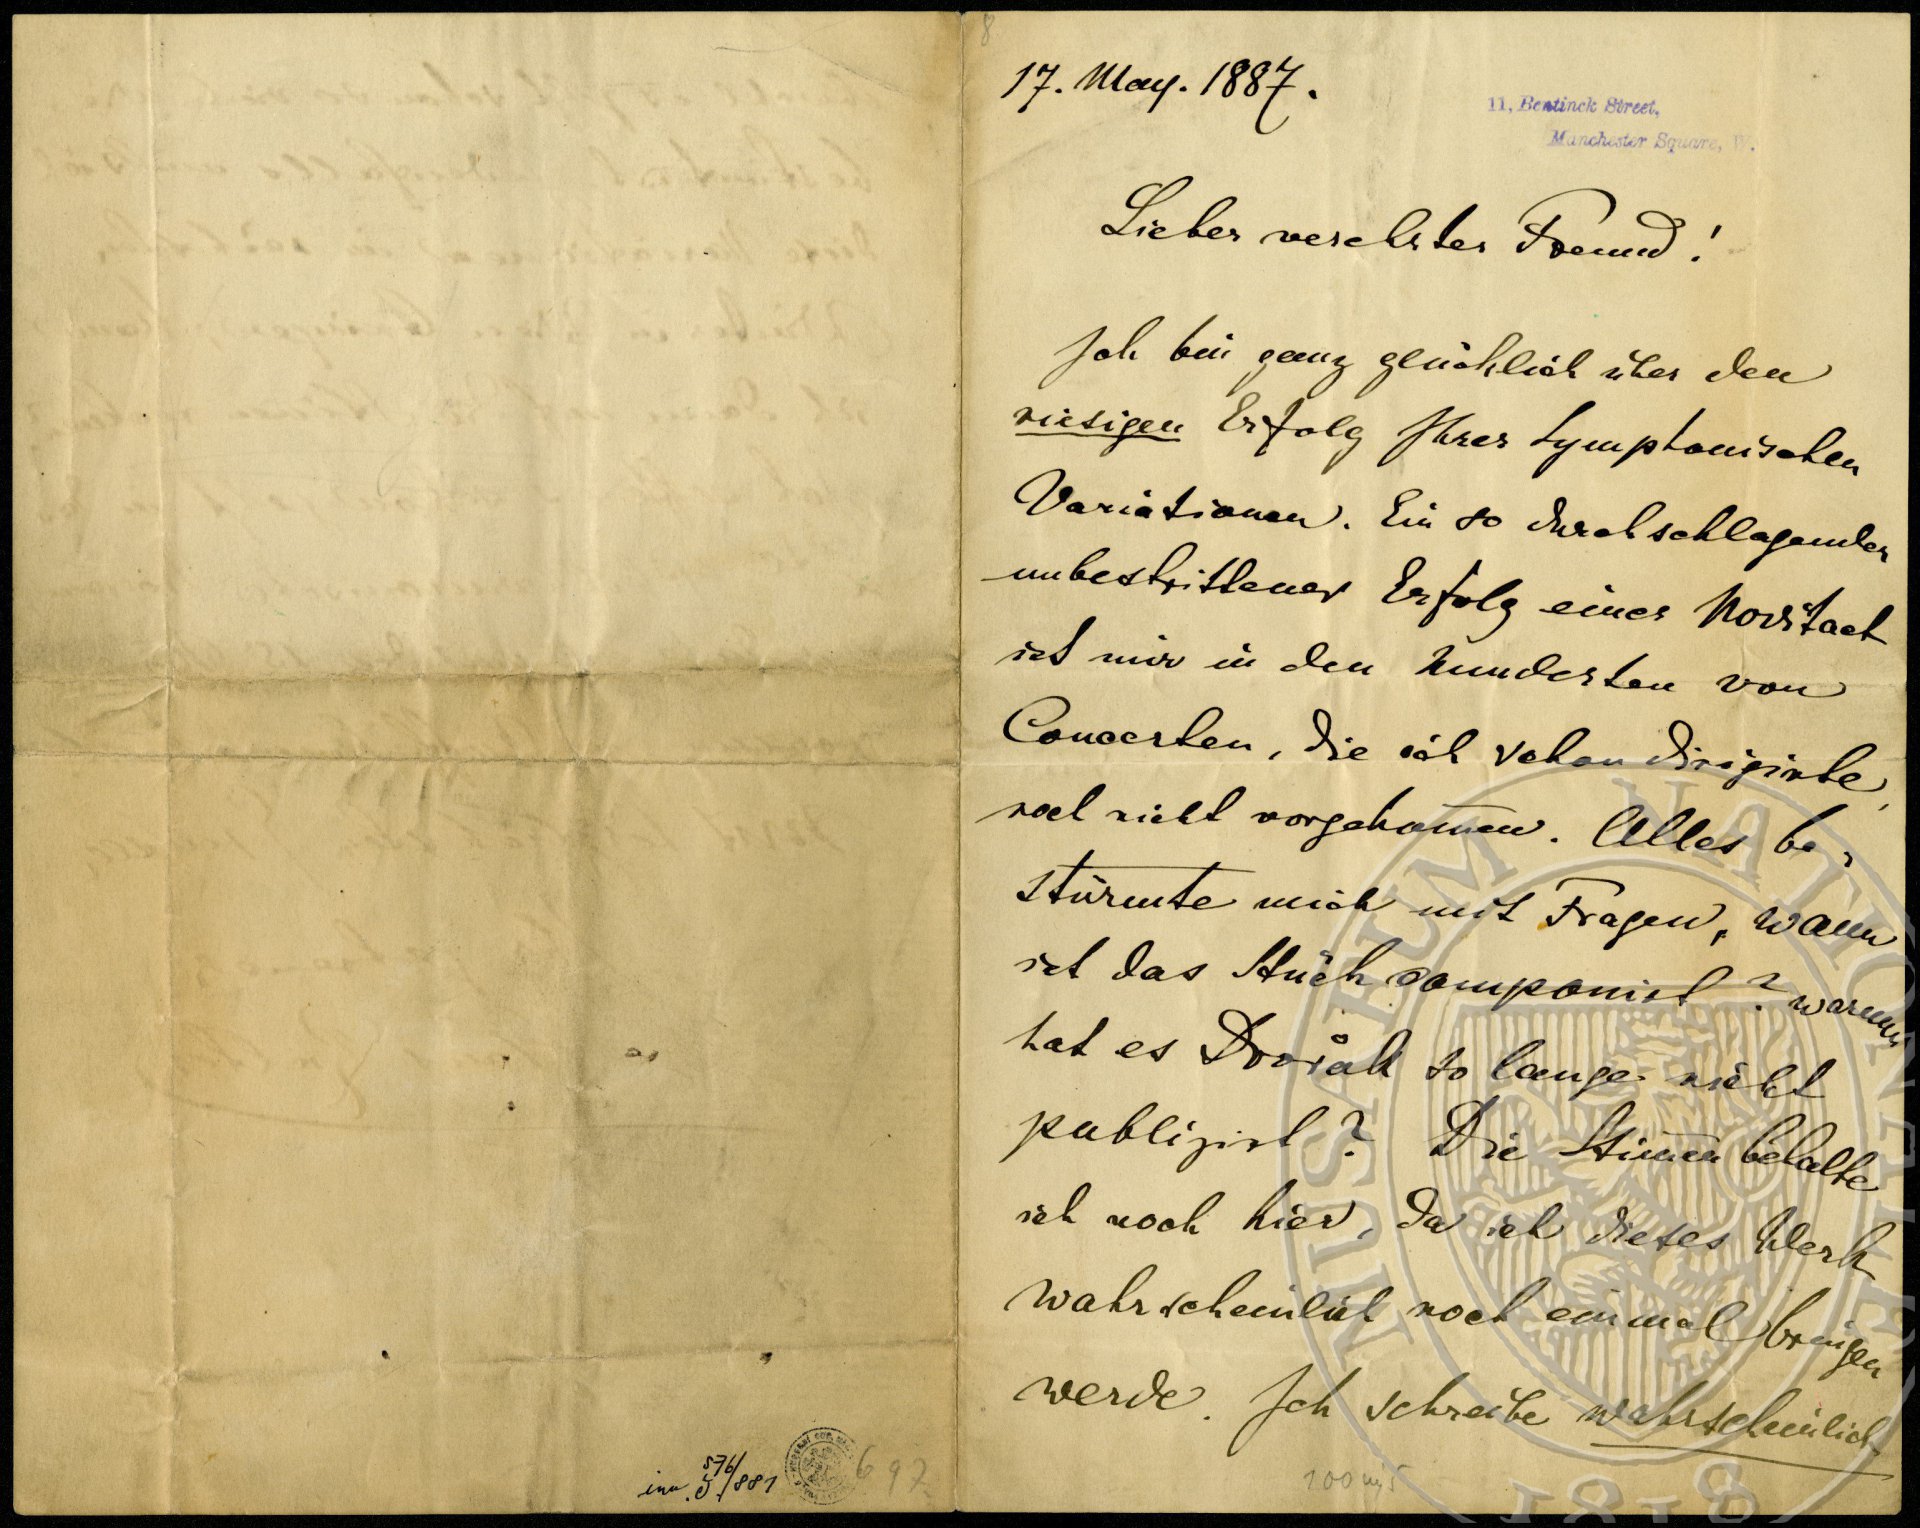 8
17. May. 1887.
11, Bentinck Street,
Manchester Square, W.
Lieber verehrter Freund!
Ich bin ganz glücklich über den
riesigen Erfolg Ihrer Symphonischen
Variationen. Ein so durchschlagender
unbestrittener Erfolg einer Novität
ist mir in den hunderten von
Concerten, die ich schon dirigirte,
noch nicht vorgekom̅en. Alles be-
stürmte mich mit Fragen, wann
ist das Stück componirt? warum
hat es Dvořák so lange nicht
publizirt? Die Stim̅en behalte
ich noch hier, da ich dieses Werk
wahrscheinlich noch einmal bringen
werde. Ich schreibe wahrscheinlich
inv. S. 576/881
697
MUSAEUM NATIONALE
1818